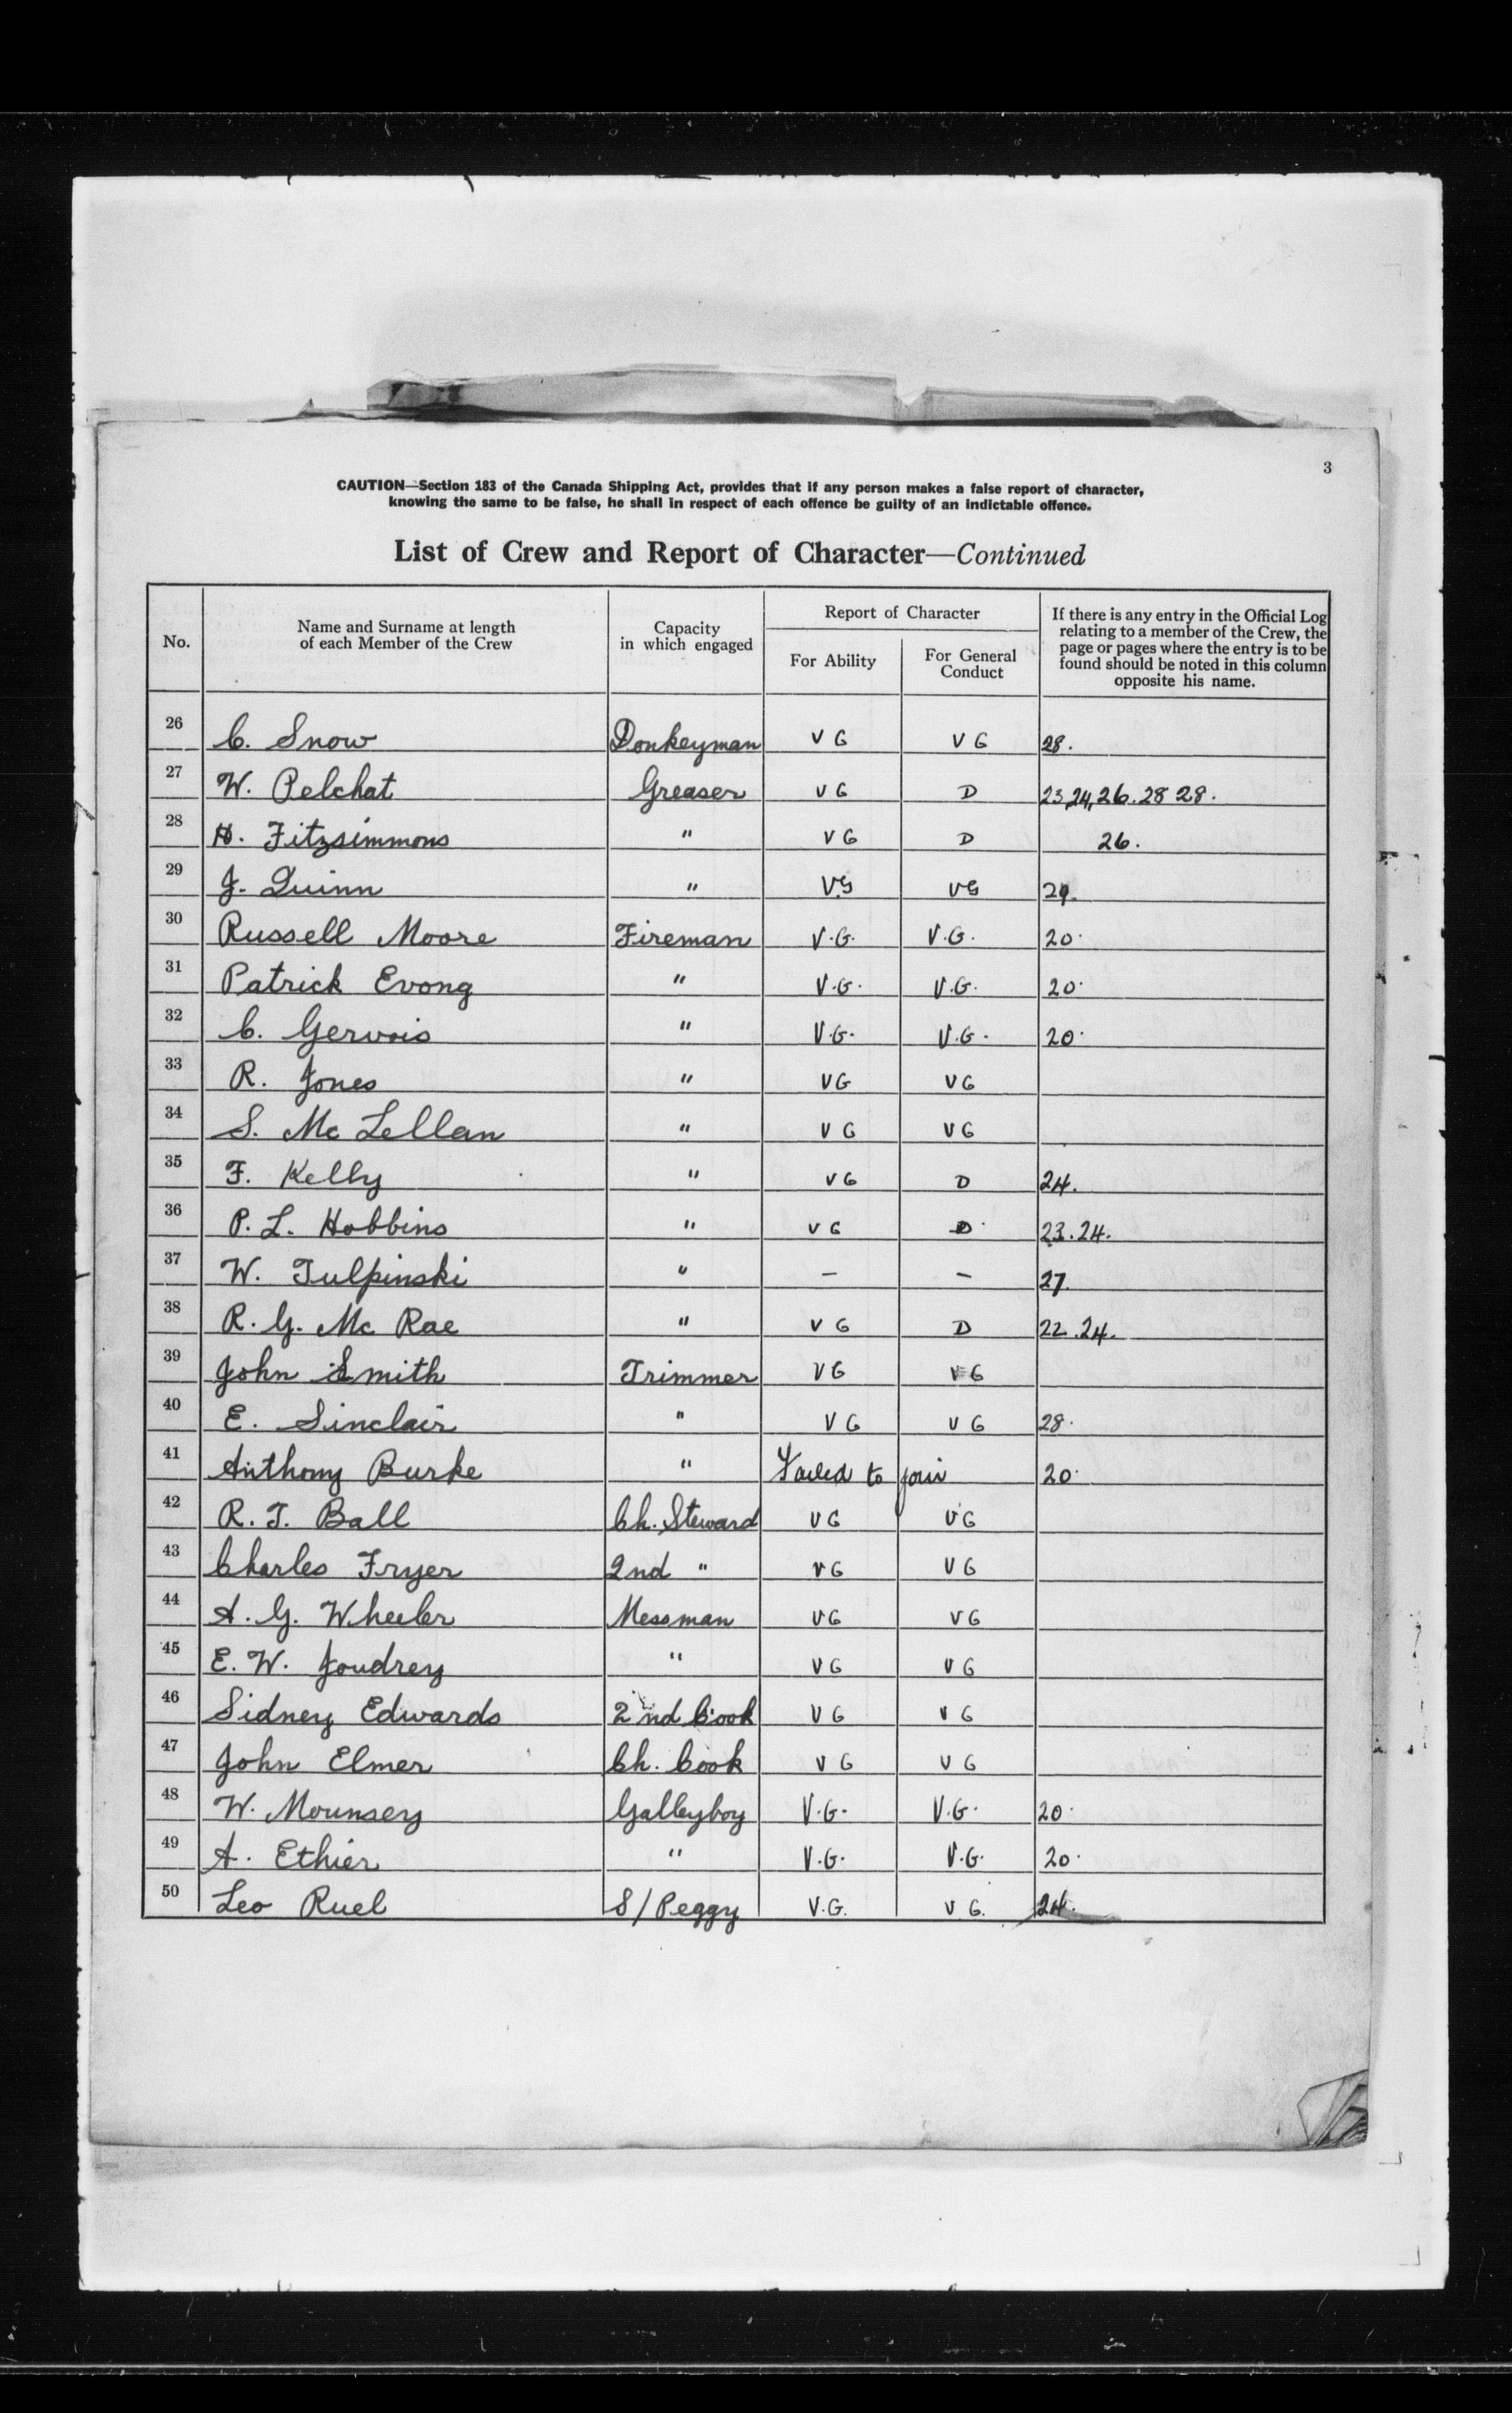 3
CAUTION—Section 183 of the Canada Shipping Act, provides that if any person makes a false report of character,
knowing the same to be false, he shall in respect of each offence be guilty of an indictable offence.
List of Crew and Report of Character—Continued
No. Name and Surname at length of each Member of the Crew Capacity in which engaged Report of Character For Ability For General Conduct If there is any entry in the Official Log relating to a member of the Crew, the page or pages where the entry is to be found should be noted in this column opposite his name.
26 C. Snow Donkeyman VG VG 28.
27 W. Pelchat Greaser VG D 23,24,26.28 28.
28 H. Fitzsimmons " VG D 26.
29 J. Quinn " VG VG 29.
30 Russell Moore Fireman V.G. V.G. 20.
31 Patrick Evong " V.G. V.G. 20.
32 C. Gervois " V.G. V.G. 20.
33 R. Jones " VG VG
34 S. Mc Lellan " VG VG
35 F. Kelly " VG D 24.
36 P. L. Hobbins " VG D 23.24.
37 W. Tulpinski " — — 27.
38 R. G. Mc Rae " VG D 22.24.
39 John Smith Trimmer VG VG
40 E. Sinclair " VG VG 28.
41 Anthony Burke " Failed to join 20.
42 R. T. Ball Ch. Steward VG VG
43 Charles Fryer 2nd " VG VG
44 A. G. Wheeler Messman VG VG
45 E. W. Joudrey " VG VG
46 Sidney Edwards 2nd Cook VG VG
47 John Elmer Ch. Cook VG VG
48 W. Mounsey Galleyboy V.G. V.G. 20.
49 A. Ethier " V.G. V.G. 20.
50 Leo Ruel S/Peggy V.G. V.G. 24.